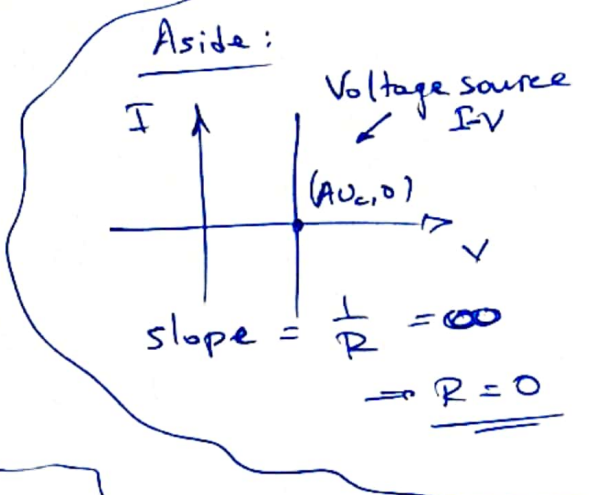 Aside:
Voltage source
I-V
I
(AUc,0)
V
slope = 1/R = ∞
⇒ R = 0